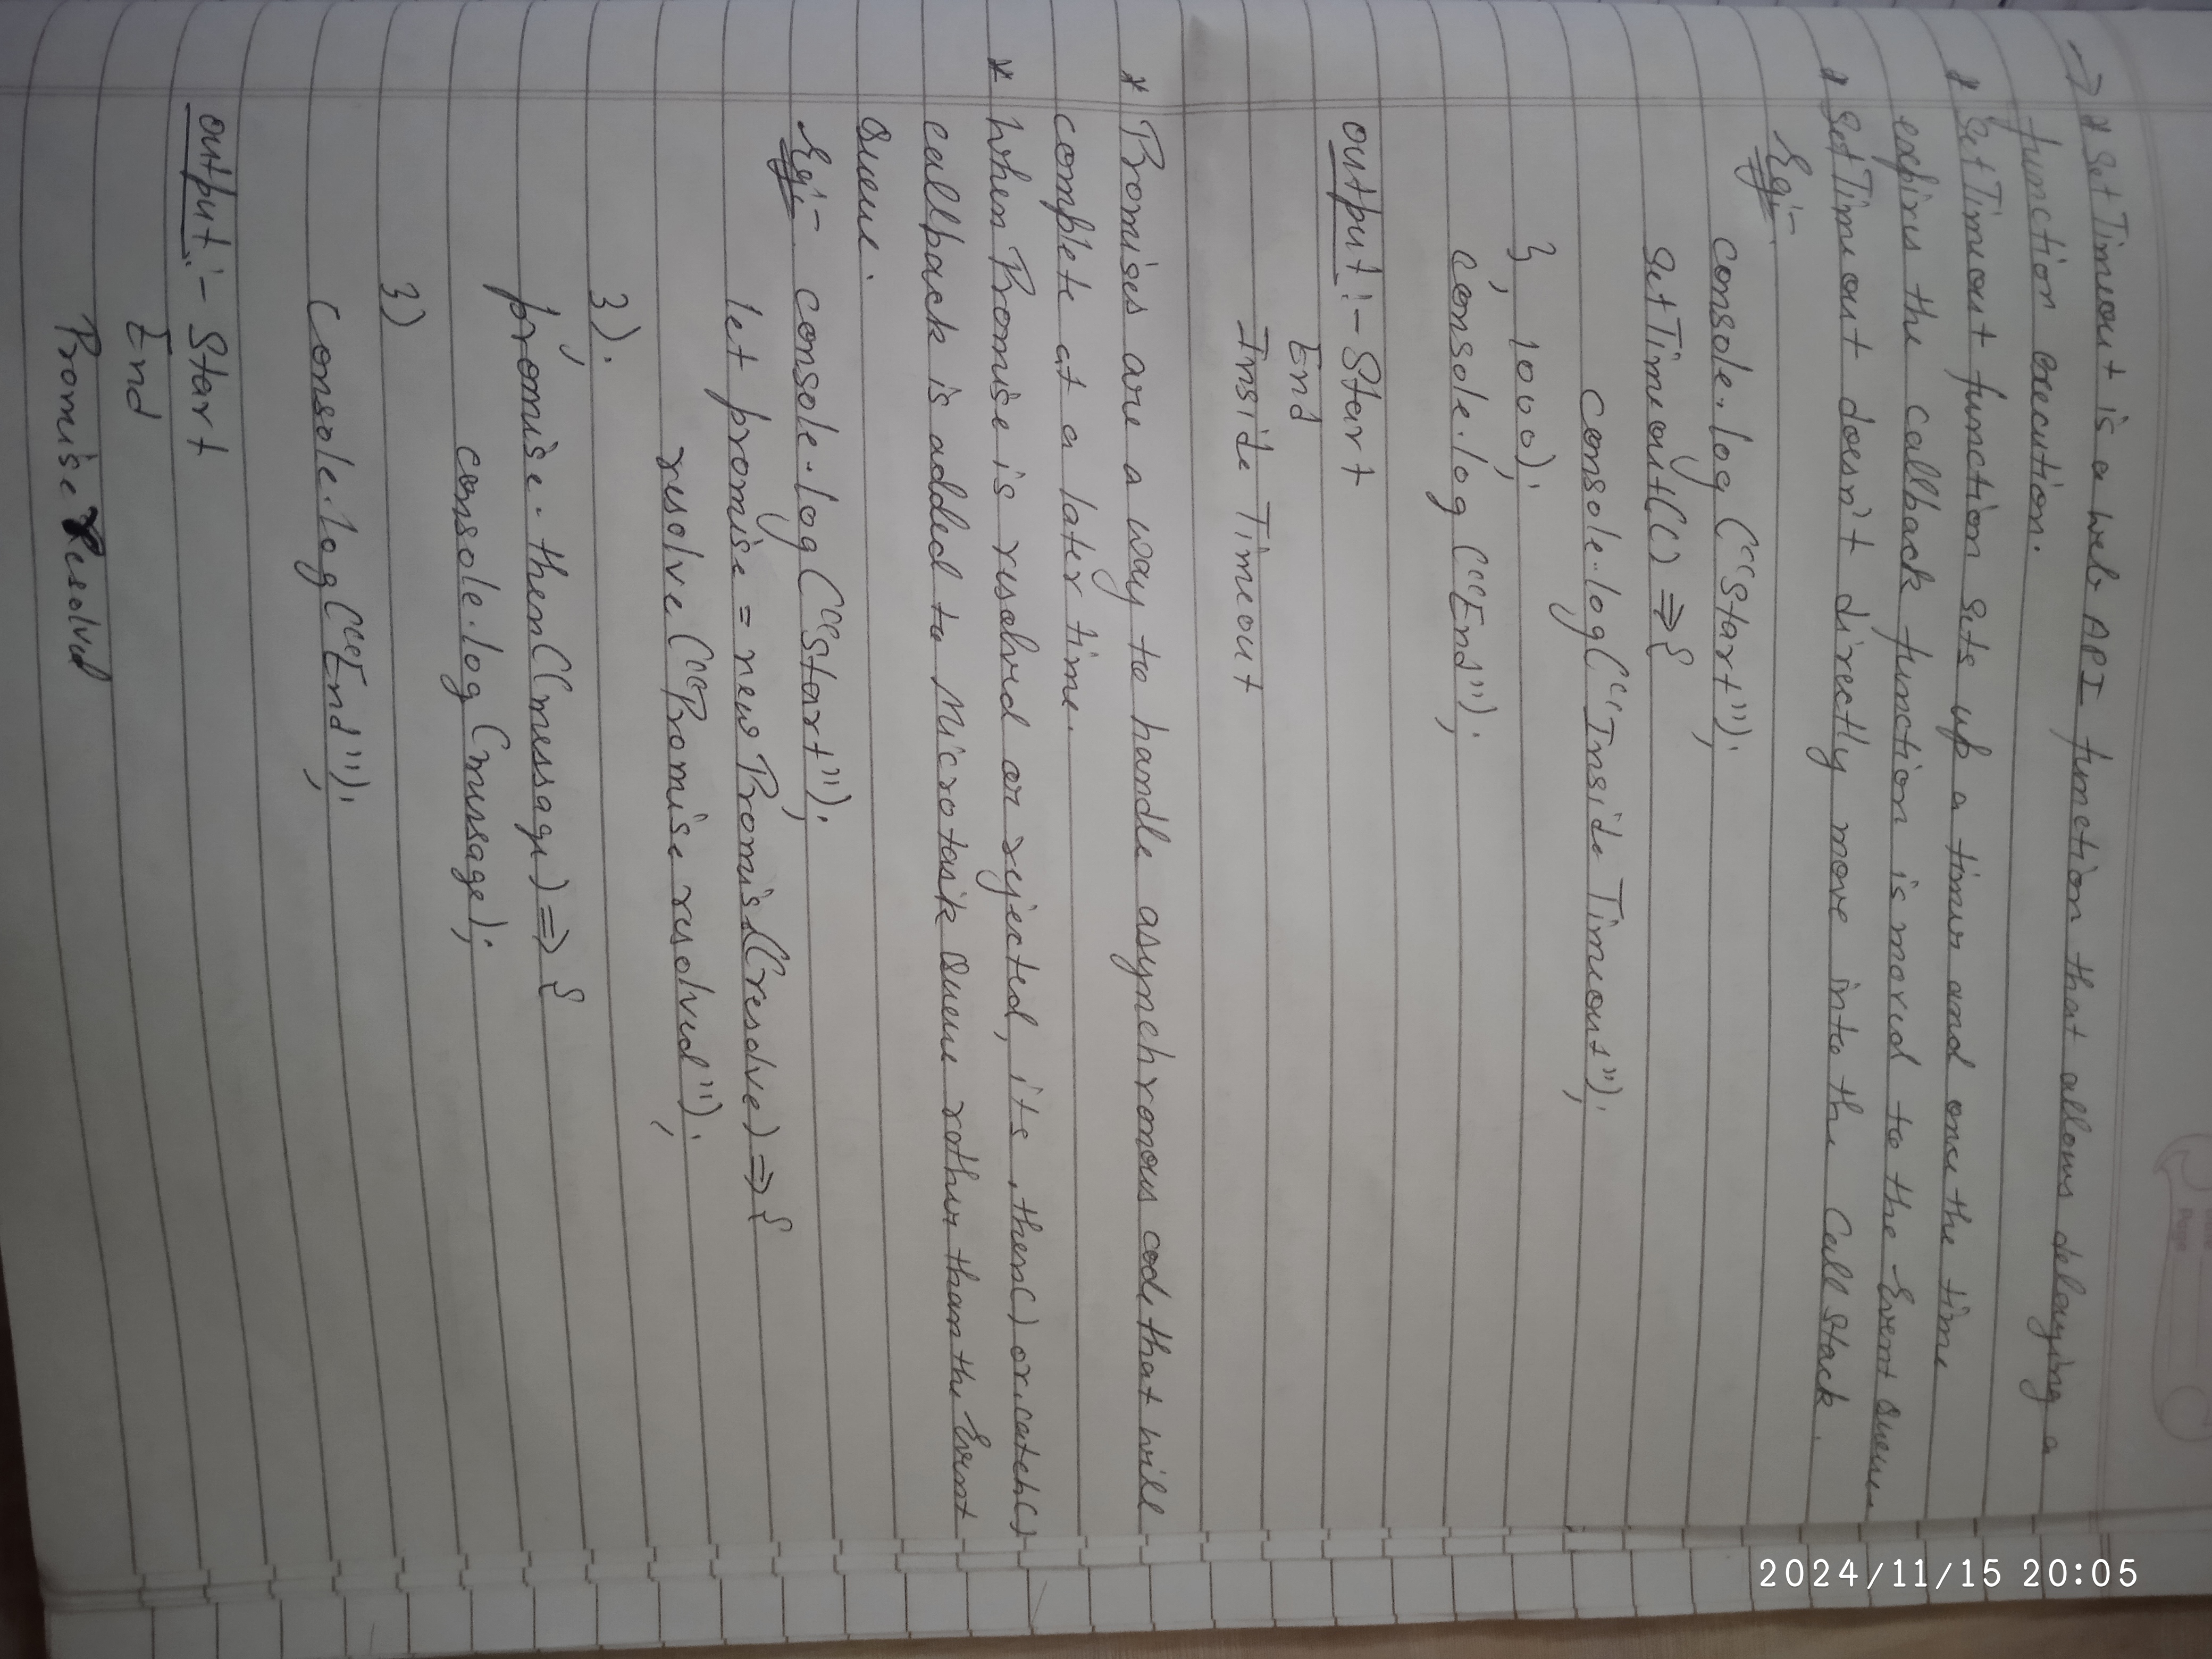 → * SetTimeout is a web API function that allows delaying a
function execution.
* SetTimeout function sets up a timer and once the time
expires the callback function is moved to the Event Queue
* SetTimeout doesn't directly move into the Call Stack.
Eg:-
console.log ("Start");
setTimeout(() => {
console.log("Inside Timeout");
}, 1000);
console.log ("End");
output:- Start
End
Inside Timeout
* Promises are a way to handle asynchronous code that will
complete at a later time.
* When Promise is resolved or rejected, its .then() or .catch()
callback is added to Microtask Queue rather than the Event
Queue.
Eg:- console.log ("Start");
let promise = new Promise((resolve) => {
resolve ("Promise resolved");
});
promise.then((message) => {
console.log (message);
})
console.log("End");
output:- Start
End
Promise Resolved
Page
2024/11/15 20:05